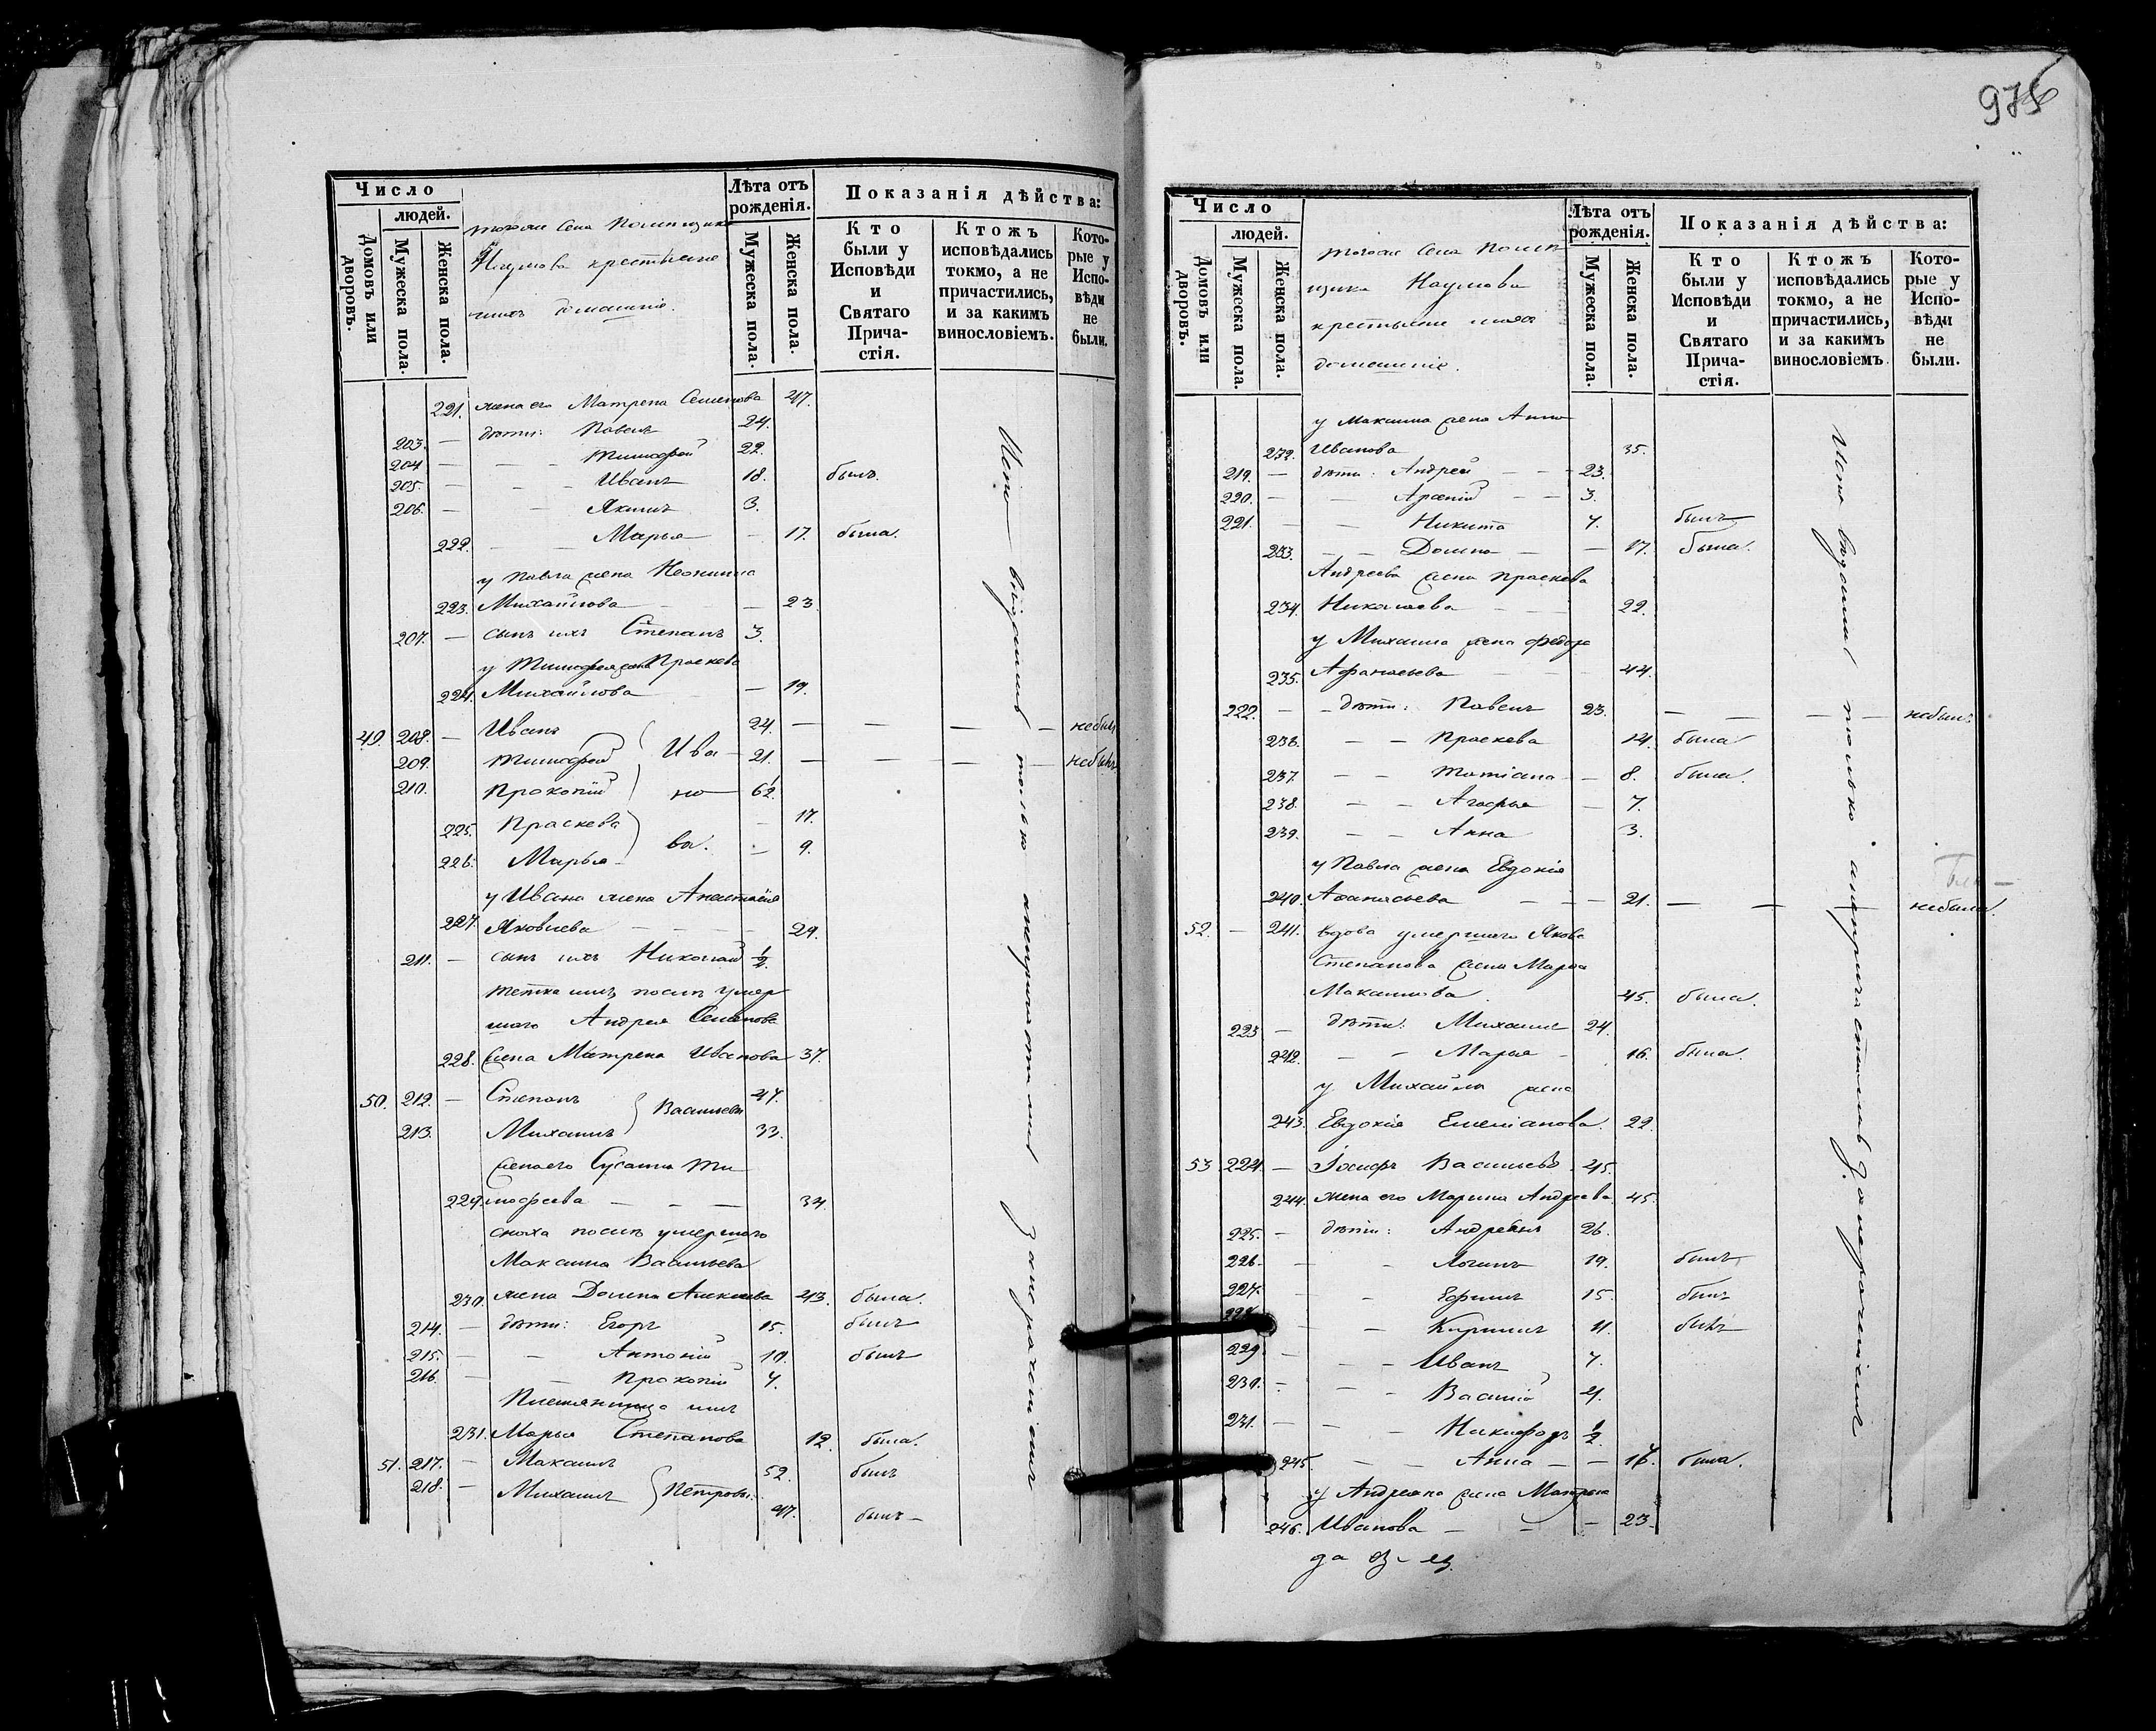 Число
людей.
Домовъ или дворовъ.
Мужеска пола.
Женска пола.
Лѣта отъ рожденія.
Мужеска пола.
Женска пола.
Показанія дѣйства:
Кто были у Исповѣди и Святаго Прича-стія.
Ктожъ исповѣдались токмо, а не причастились, и за какимъ винословіемъ.
Кото-рые у Испо-вѣди не были.
тогоже Села Помещика
Наумова крестьяне
ихъ домашніе.
221. жена его Матрена Семенова 47.
203. — дѣти: Павелъ 24.
204 — — — Тимофей 22.
205. — — — Иванъ 18. былъ.
206. — — Якимъ 3.
222. — — Марья — 17. была.
у Павла жена Неонила
223. Михайлова — — 23
207. — сынъ ихъ Степанъ 3.
у Тимофея жена Праскева
224. Михайлова — 19.
49. 208. — Иванъ 24. — — — — небылъ
209. Тимофей Ива — 21. — — — — небылъ
210. Прокопій но —
225. Праскева — 17.
226. Марья — ва. — 9.
у Ивана жена Анастасія
227. Яковлева — — — — 29.
211. — сынъ ихъ Николай ½.
тетка ихъ послѣ умер
шаго Андрея Семенова
228. жена Матрена Иванова 37.
50. 212. — Степанъ Васильевы 47.
213. Михаилъ 33.
жена его Сусанна Ти
229. мофеева — — — 34.
сноха послѣ умершаго
Максима Васильева
230. жена Домна Алексѣева 43. была.
214. — дѣти: Егоръ 15. былъ
215. — — Антоній 10. былъ
216. — — Прокопій 7.
Племянница ихъ
231. Марья Степанова 12. была.
51. 217. — Максимъ 52. былъ
218. — Михаилъ Петровы. 47. былъ —
975
Число
людей.
Домовъ или дворовъ.
Мужеска пола.
Женска пола.
Лѣта отъ рожденія.
Мужеска пола.
Женска пола.
Показанія дѣйства:
Кто были у Исповѣди и Святаго Прича-стія.
Ктожъ исповѣдались токмо, а не причастились, и за какимъ винословіемъ.
Кото-рые у Испо-вѣди не были.
тогоже Села Помѣ
щика Наумова
крестьяне ихъ
домашніе.
у Максима жена Анна
232. Иванова 35.
219. — дѣти: Андрей — — 23.
220. — — Арсеній — — 3.
221. — — Никита 7. былъ
233. — — Домна — — 17. была.
Андреева жена Праскева
234. Николаева — — 22.
у Михаила жена Федора
235. Афанасьева — — 44.
222. — — дѣти: Павелъ 23. — — — — небылъ.
236. — — Праскева 14. была
237. — — Татіана — 8. была.
238. — — Агафья — 7.
239. — — Анна 3.
у Павла жена Евдокія
240. Афанасьева — — — 21. — — — небыла.
52. — 241. вдова умершаго Якова
Степанова жена Марья
Максимова. 45. была.
223 — дѣти: Михаилъ 24.
242. — — Марья — 16. была.
у Михайлы жена
243. Евдокія Емеліанова. 22.
53 224. — Іосифъ Васильевъ 45.
244. жена его Марина Андреева. 45.
225. — дѣти: Андреянъ 26.
226. — — Логинъ 19. былъ
227. — — Ефимъ 15. былъ
— — Кирилъ 11. былъ
229 — — — Иванъ 7.
230. — — — Василій 4.
231. — — — Никифоръ ½.
245. — — Анна — — 16. была.
у Андреяна жена Матрена
246. Иванова — — — 23